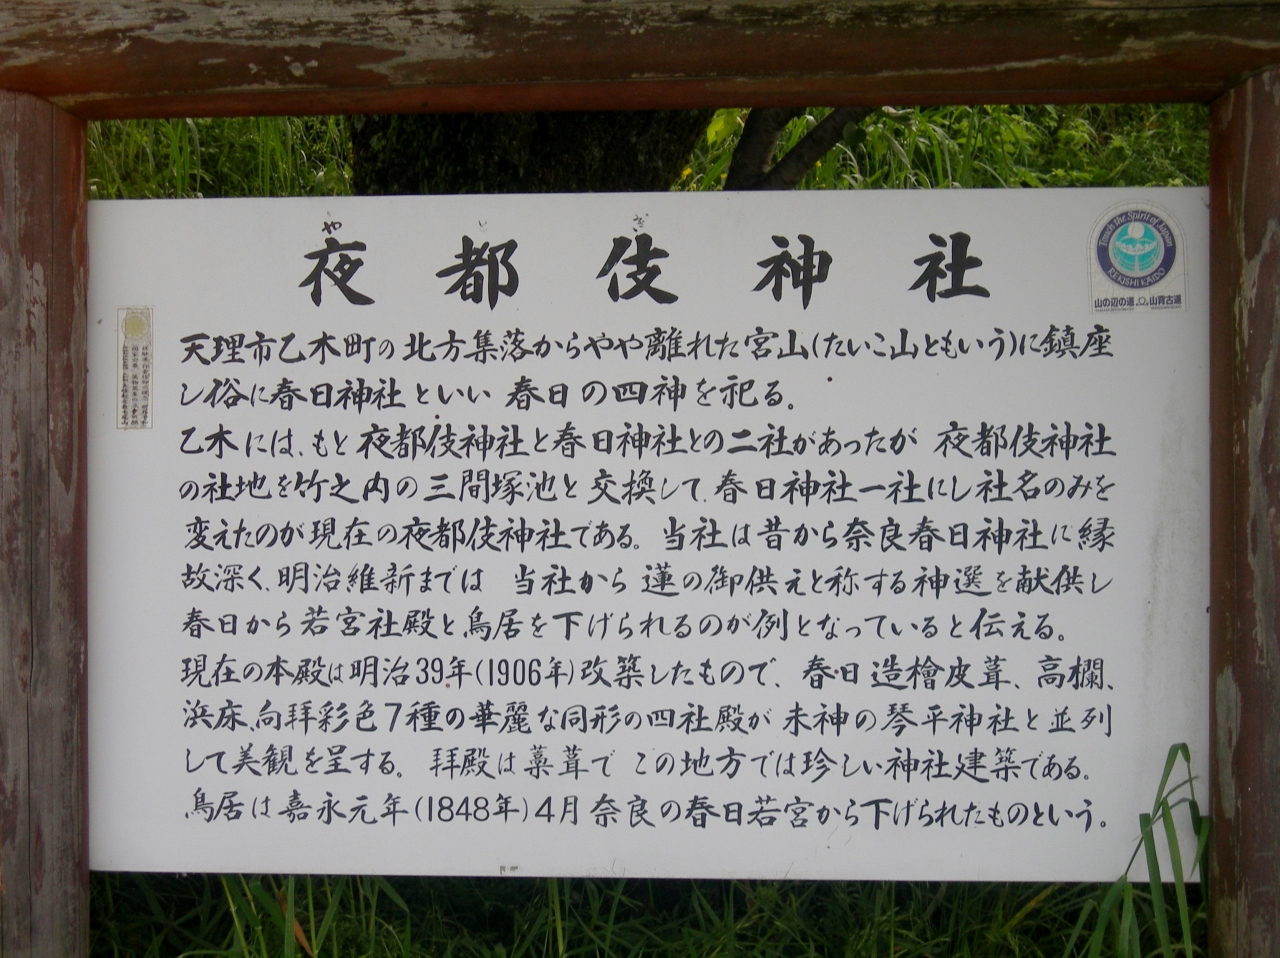 や と ぎ
夜都伎神社
Touch the Spirit of Japan
REKISHI KAIDO
山の辺の道
天理市乙木町の北方集落からやや離れた宮山(たいこ山ともいう)に鎮座
し俗に春日神社といい 春日の四神を祀る。
乙木には、もと夜都伎神社と春日神社との二社があったが 夜都伎神社
の社地を竹之内の三間塚池と交換して、春日神社一社にし社名のみを
変えたのが現在の夜都伎神社である。当社は昔から奈良春日神社に縁
故深く、明治維新までは 当社から蓮の御供えと称する神選を献供し
春日から若宮社殿と、鳥居を下げられるのが例となっていると伝える。
現在の本殿は明治39年(1906年)改築したもので、春日造檜皮葺、高欄、
浜床、向拝彩色7種の華麗な同形の四社殿が 末神の琴平神社と並列
して美観を呈する。拝殿は藁葺で この地方では珍しい神社建築である。
鳥居は嘉永元年(1848年)4月奈良の春日若宮から下げられたものという。